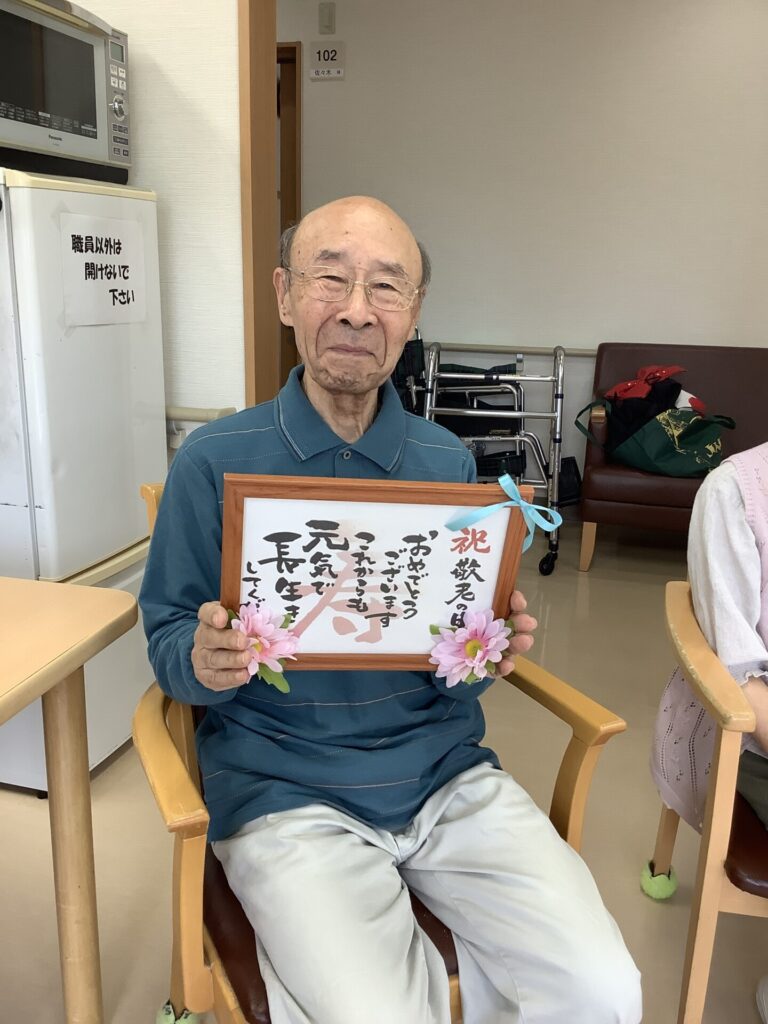 102
佐々木 様
Panasonic
職員以外は
開けないで
下さい
祝 敬老の日
おめでとう
ございます
これからも
元気で
長生き
してくだ
寿